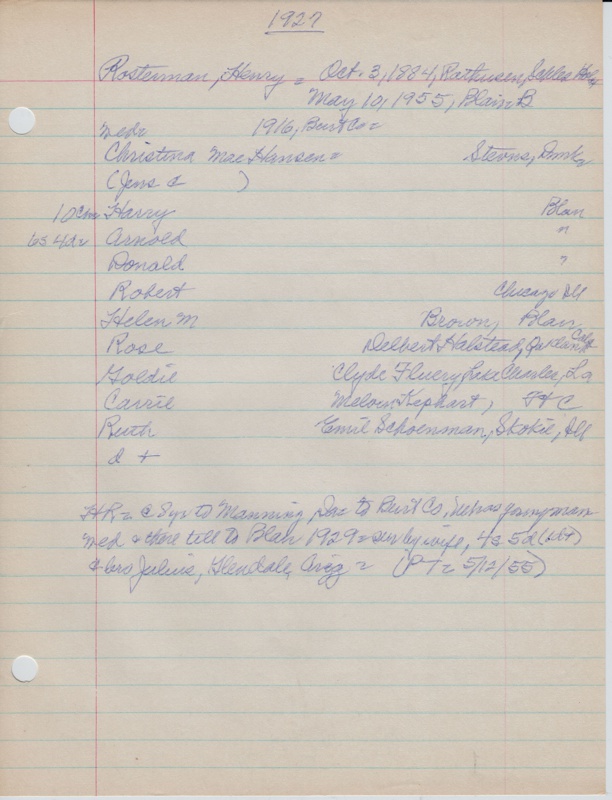 1927
Rosterman, Henry = Oct. 3, 1884, Rathensen,
May 10, 1955, Blair B
Wed= 1916, Burt Co=
Christina Mae Hansen= Stevns, Dmk
(Jens & )
10 chn Harry Blair
6s 4d= Arnold "
Donald "
Robert Chicago Ill
Helen M Brown, Blair
Rose Delbert Halstead, Oakland Calif
Goldie Clyde Fluery, Lake Charles, La
Carrie Melvin Kephart, F H C
Ruth Emil Schoenman, Skokie, Ill
d +
HR= @ 8 yr to Manning, Ia to Burt Co, Neb as young man
Wed & there till to Blair 1929= sur by wife, 4s 5d (list)
& bro Julius, Glendale, Ariz = (PT= 5/12/55)